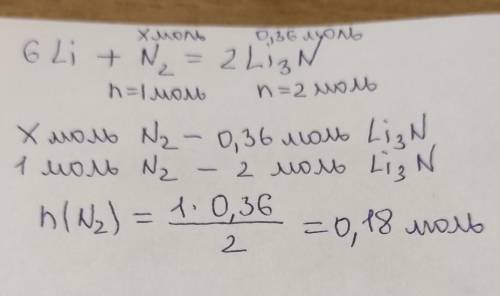 x моль 0,36 моль
6 Li + N₂ = 2 Li₃N
n=1 моль n=2 моль
x моль N₂ – 0,36 моль Li₃N
1 моль N₂ – 2 моль Li₃N
n(N₂) = 1·0,36 / 2 = 0,18 моль